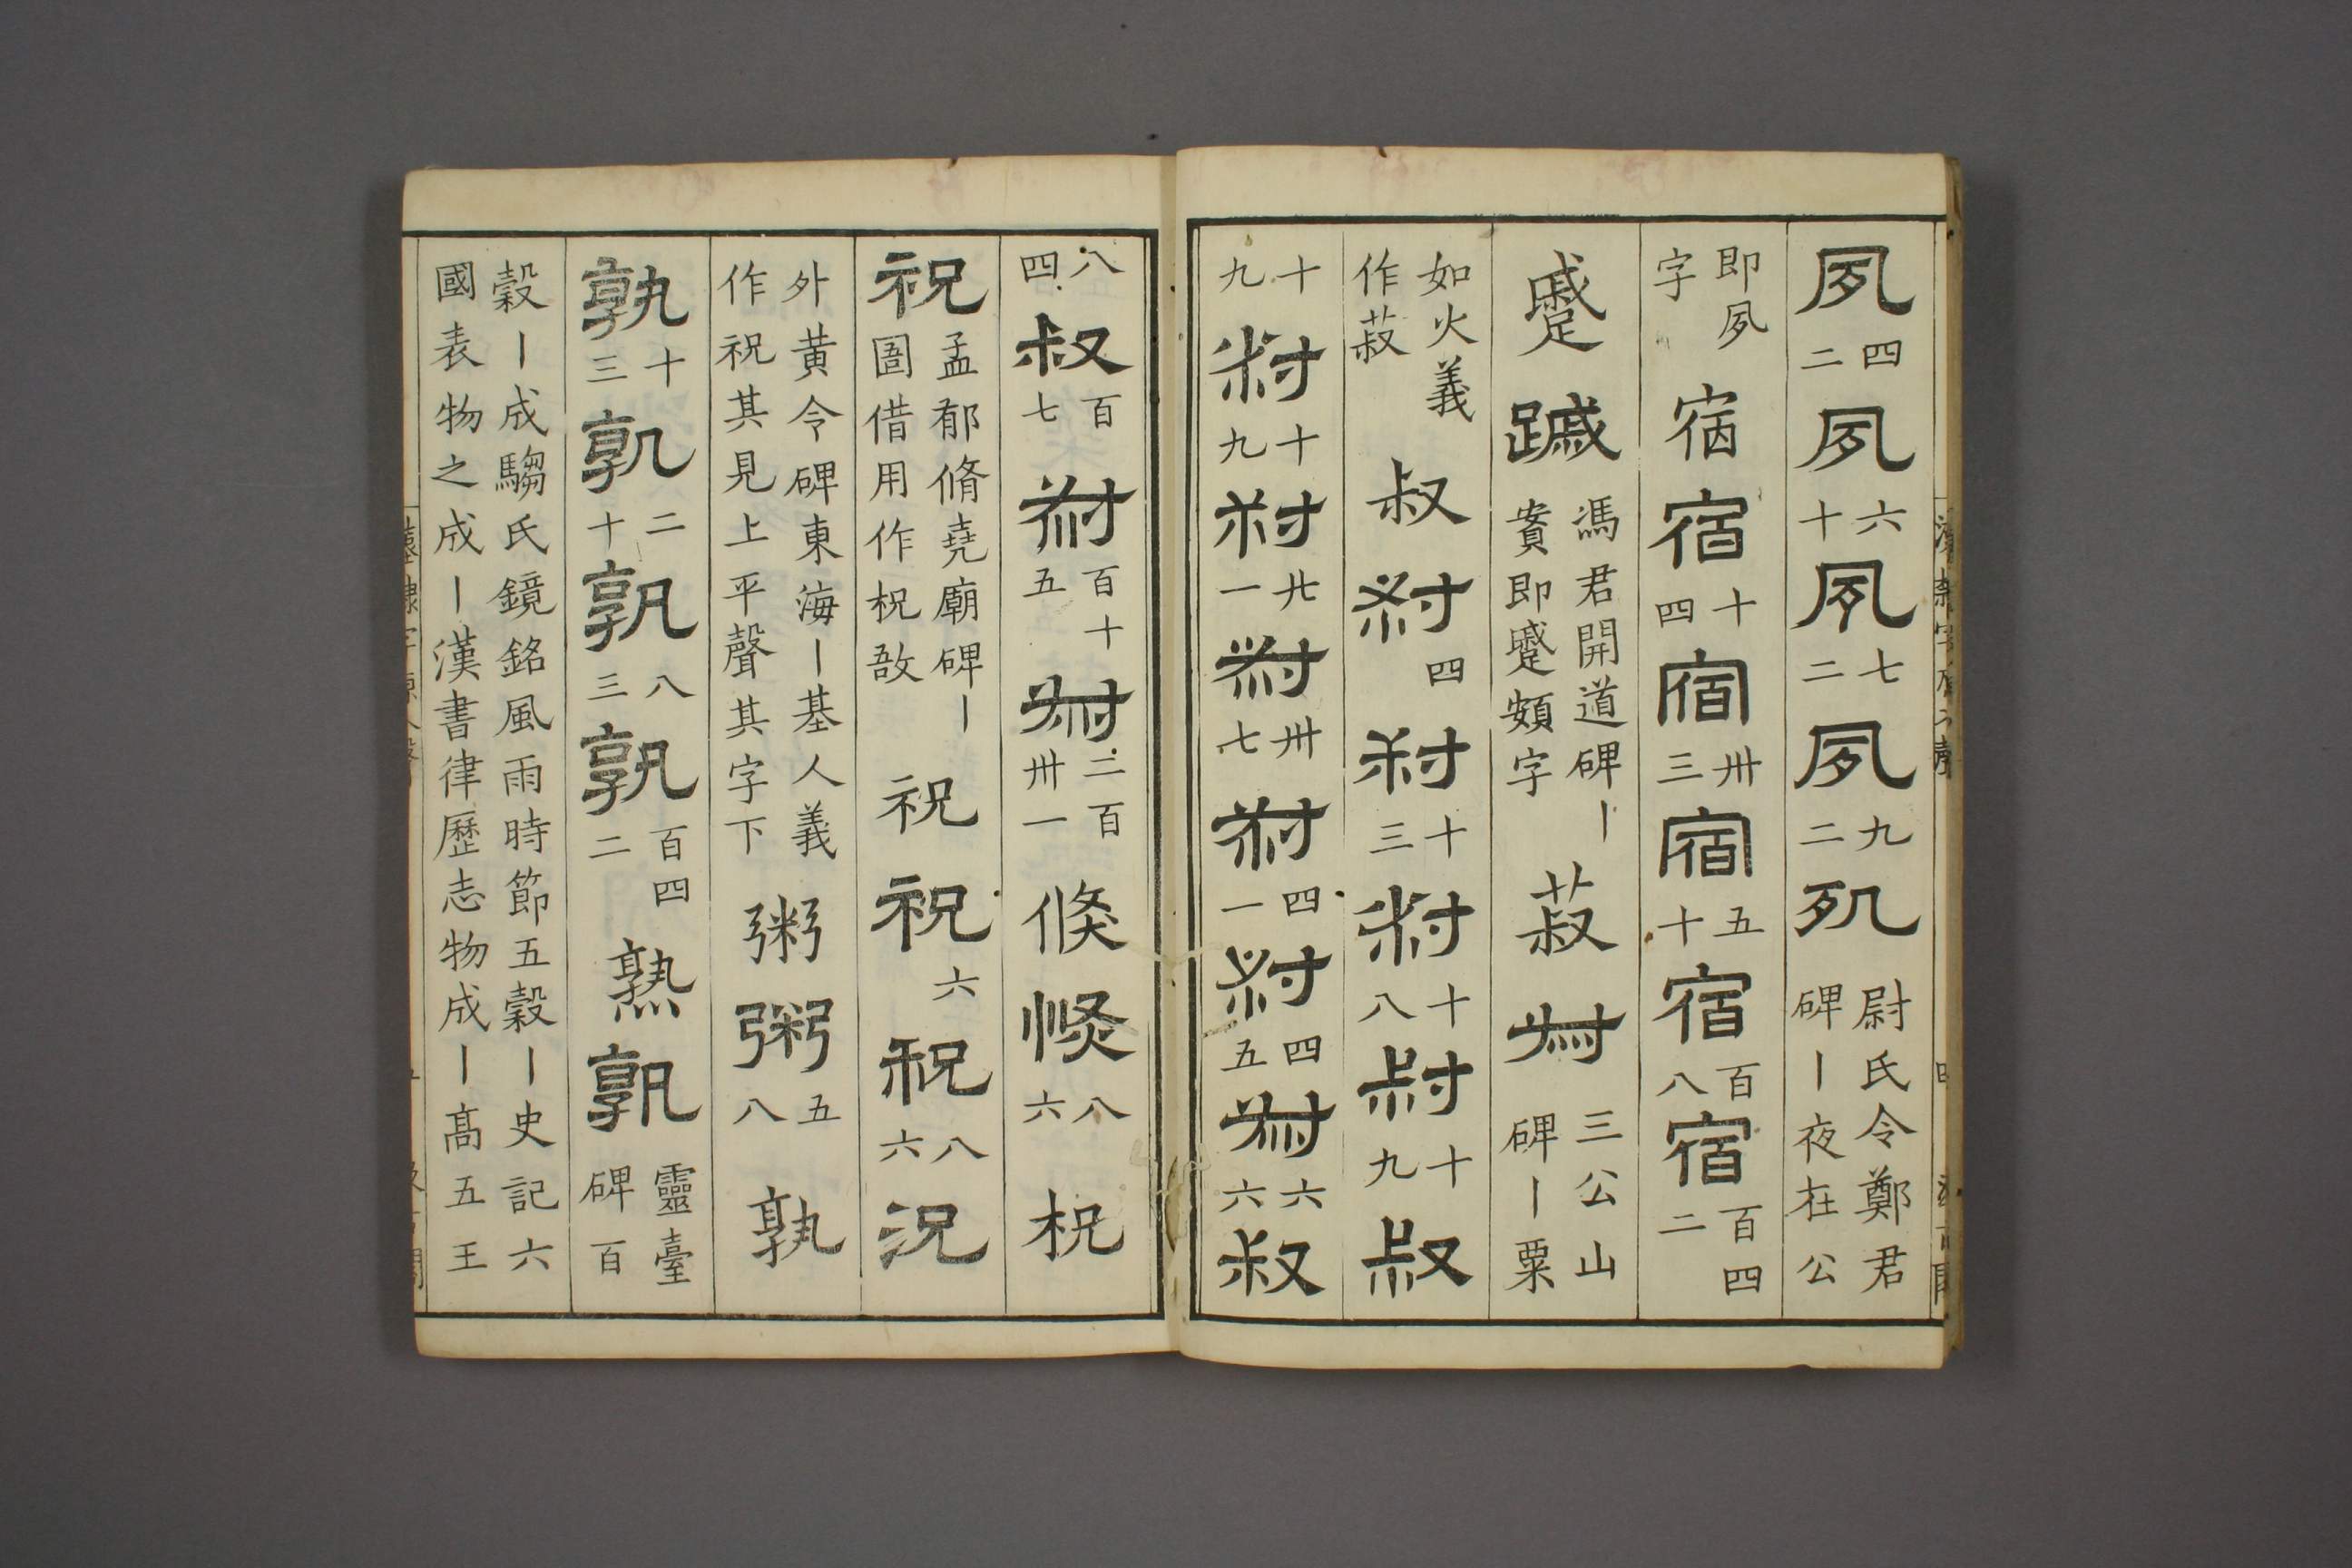 夙四二夙六十夙七二夙九二夙尉氏令鄭君碑ー夜在公
即夙字宿宿十四宿卅三宿五十宿百八宿百四二
蹙蹴馮君開道碑ー賁即蹙頞字菽叔三公山碑ー粟
如火義作菽叔叔四叔十三叔十八叔十九叔
十九叔十九叔廿一叔卅七叔四一叔四五叔六六叔
八四叔百七叔百十五叔二百卅一倏倏八六柷
祝孟郁脩堯廟碑ー圄借用作柷敔祝祝六祝八六況
外黄令碑東海ー基人義作祝其見上平聲其字下粥粥五八孰
孰十三孰二十孰八三孰百四二熟孰靈臺碑百
穀ー成騶氏鏡銘風雨時節五穀ー史記六國表物之成ー漢書律歷志物成ー高五王